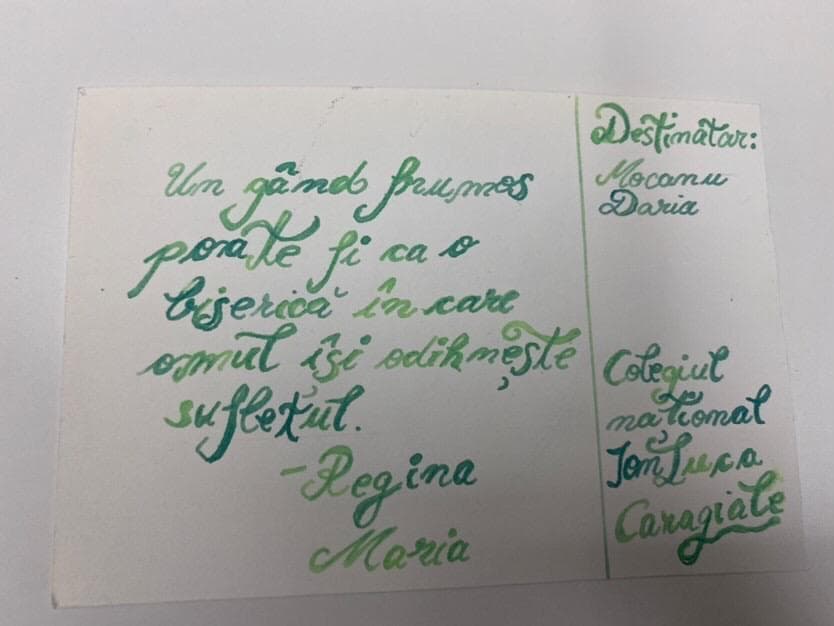 Un gând frumos
poate fi ca o
biserică în care
omul își odihnește
sufletul.
-Regina
Maria
Destinatar:
Mocanu
Daria
Colegiul
național
Ion Luca
Caragiale